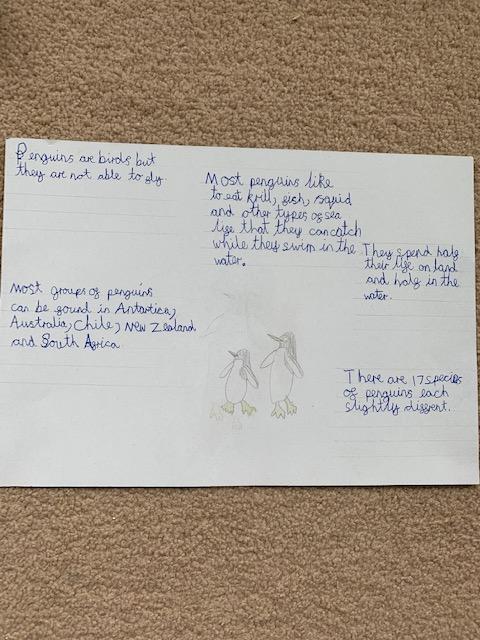 Penguins are birds but
they are not able to fly
Most penguins like
to eat krill, fish, squid
and other types of sea
life that they can catch
while they swim in the
water.
They spend half
their life on land
and half in the
water.
Most groups of penguins
can be found in Antartica,
Australia, Chile, New Zealand
and South Africa
There are 17 species
of penguins each
slightly different.